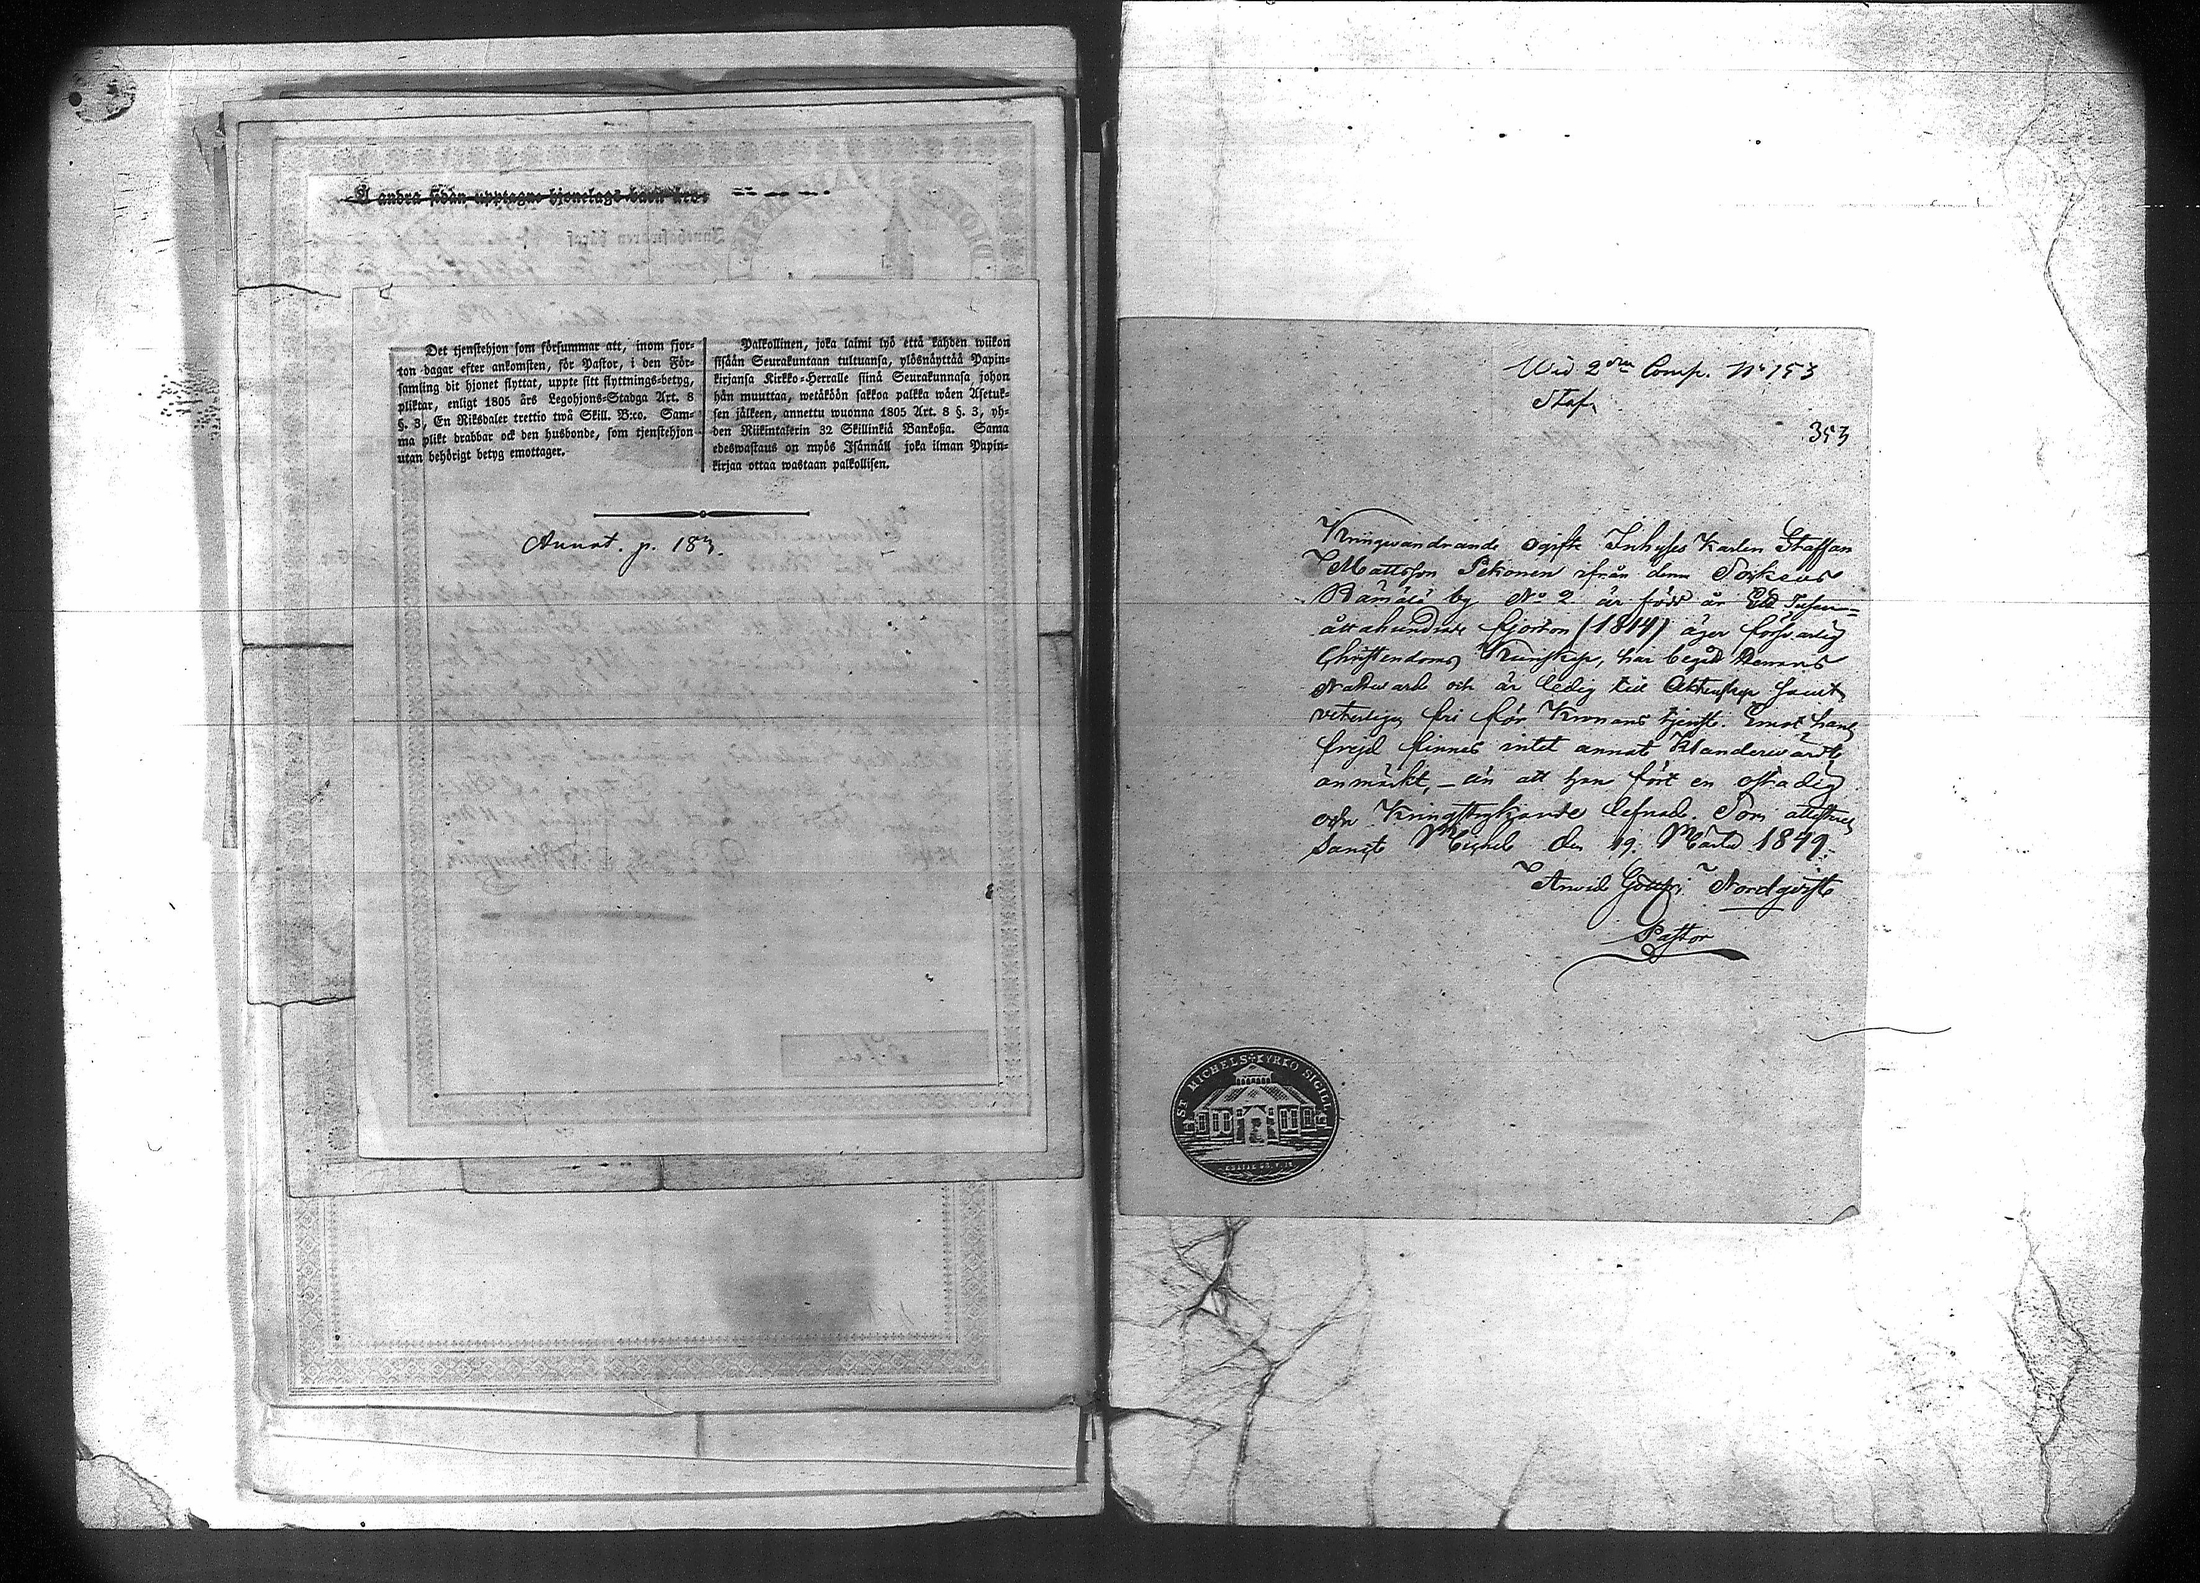 A andra sidan upptagne hjonelags
Det tjenstehjon som försummar att, inom fjor-
ton dagar efter ankomsten, för Pastor, i den För-
samling dit hjonet flyttat, uppte sitt flyttnings-betyg,
pliktar, enligt 1805 års Legohjons-Stadga Art. 8
§. 3, En Riksdaler trettio twå Skill. B:co. Sam-
ma plikt drabbar ock den husbonde, som tjenstehjon
utan behörigt betyg emottager.
Palkollinen, joka laimi lyö että kahden wiikon
sisään Seurakuntaan tultuansa, ylösnäyttää Papin-
kirjansa Kirkko-Herralle siinä Seurakunnasa johon
hän muuttaa, wetäköön sakkoa palkka wäen Asetuk-
sen jälkeen, annettu wuonna 1805 Art. 8 §. 3, yh-
den Riikintalerin 32 Skillinkiä Bankoßa. Sama
edeswastaus on myös Isännäll joka ilman Papin-
kirjaa ottaa wastaan palkollisen.
Annot. p. 183.
Wid 2dra Comp. No 153
Staf.
353
Kringwandrande ogifte Inhyses Karlen Staffan
Mattsson Pekonen ifrån denna Sockens
Rämälä by No 2 är född år Ett Tusen=
åttahundrade fjorton (1814) äger förswarlig
Christendoms Kunskap, har begått Herrans
Nattward och är ledig till Äktenskap samt
veterligen fri för Kronans tjenst. Emot hans
frejd finnes intet annat klanderwärdt
anmärkt, – än att han fört en ostadig
och Kringstrykande lefnad. Som attesteras
Sanct Michel den 19. Martii 1849.
Arvid Gottfr. Nordqvist
Pastor
ST MICHELS KYRKO SIGILL